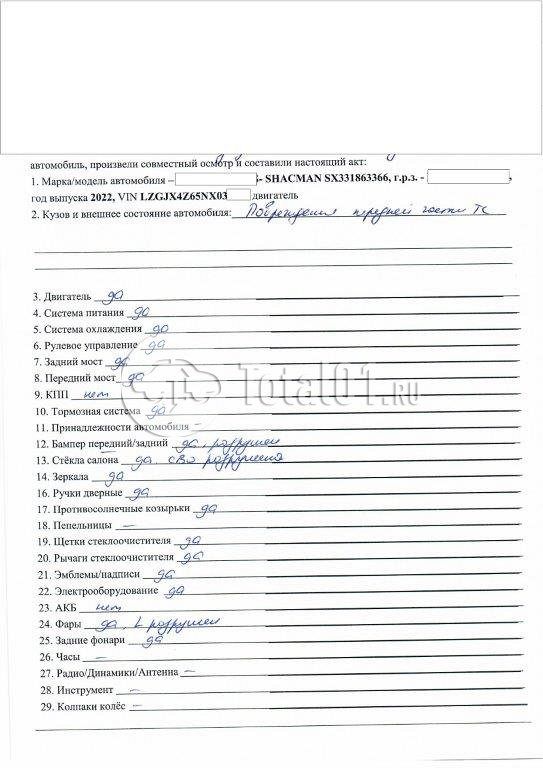 автомобиль, произвели совместный осмотр и составили настоящий акт:
1. Марка/модель автомобиля – - SHACMAN SX331863366, г.р.з. - ,
год выпуска 2022, VIN LZGJX4Z65NX03 двигатель
2. Кузов и внешнее состояние автомобиля: Повреждения передней части ТС
3. Двигатель да
4. Система питания да
5. Система охлаждения да
6. Рулевое управление да
7. Задний мост да
8. Передний мост да
Total01.RU
9. КПП нет
10. Тормозная система да
11. Принадлежности автомобиля –
12. Бампер передний/задний да, разрушен
13. Стёкла салона да, разрушена
14. Зеркала да
16. Ручки дверные да
17. Противосолнечные козырьки да
18. Пепельницы –
19. Щетки стеклоочистителя да
20. Рычаги стеклоочистителя да
21. Эмблемы/надписи да
22. Электрооборудование да
23. АКБ нет
24. Фары да, L разрушен
25. Задние фонари да
26. Часы –
27. Радио/Динамики/Антенна –
28. Инструмент –
29. Колпаки колёс –